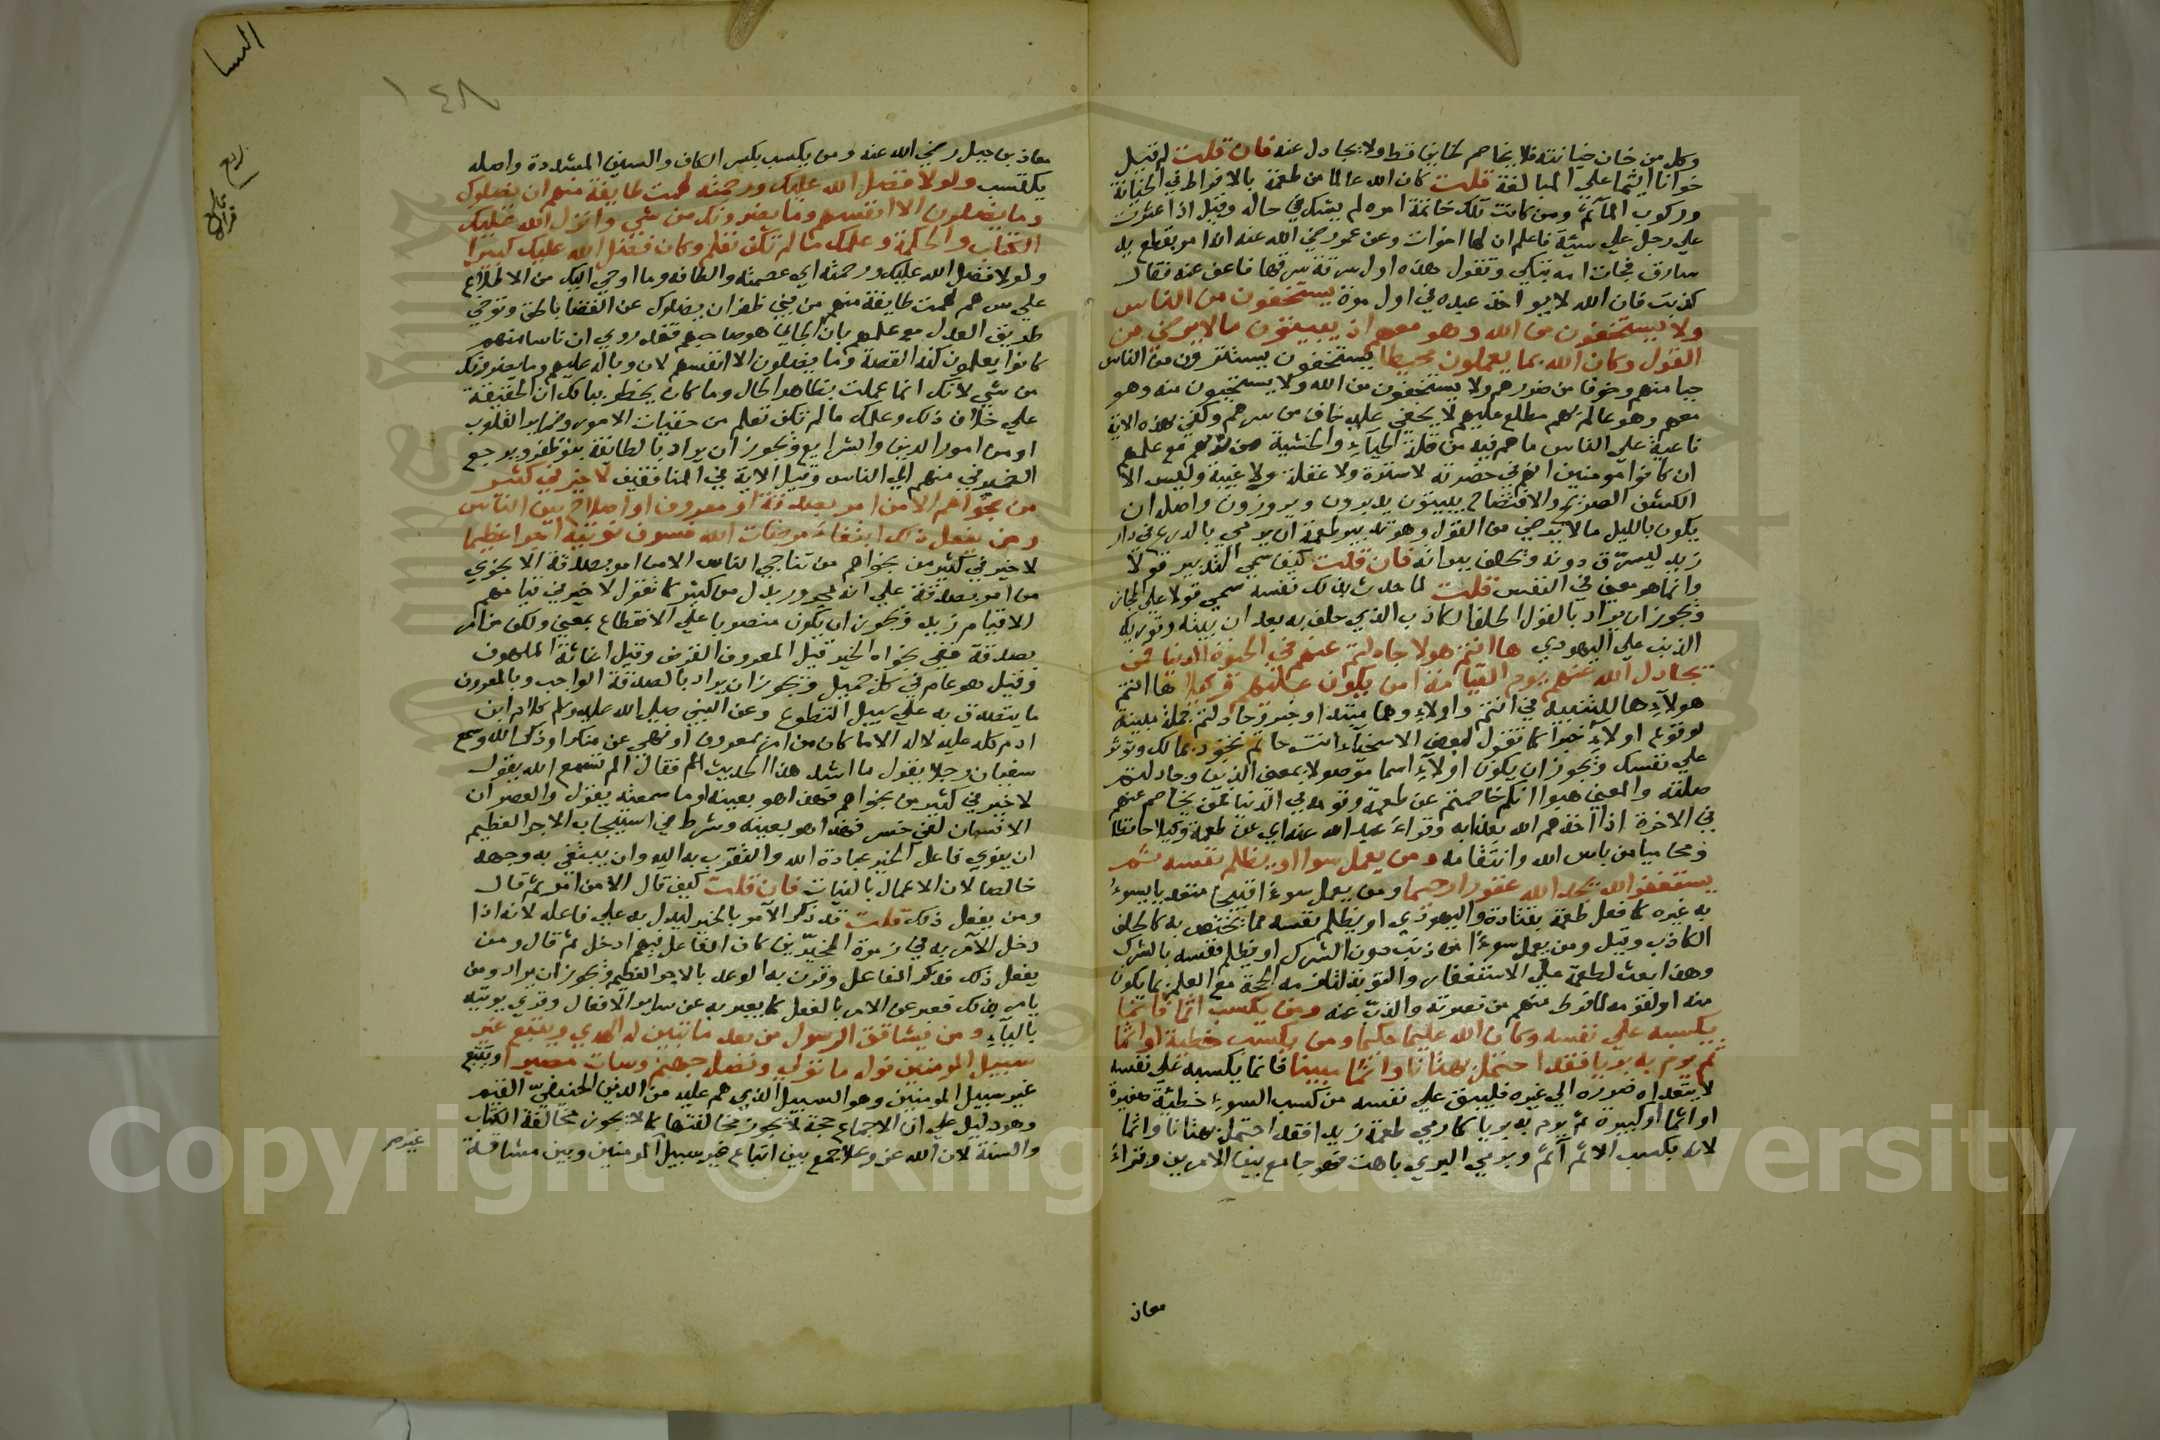 وكل من خان خيانته فلا يخاصم لخاين قط ولا يجادل عنه فان قلت لم قيل
خوانا اثيما علي المبالغة قلت كان الله عالما من طعمة بالافراط في الخيانة
وركوب المآثم ومن كانت تلك خاتمة امره لم يشك في حاله وقيل اذا عثرت
علي رجل علي سيئة فاعلم ان لها اخوات وعن عمر رضي الله عنه انه امر بقطع يد
سارق فجات امه تبكي وتقول هذه اول سرقة سرقها فاعف عنه فقال
كذبت فان الله لا يواخذ عبده في اول مرة يستخفون من الناس
ولا يستخفون من الله وهو معهم اذ يبيتون ما لا يرضي من
القول وكان الله بما يعملون محيطا يستخفون يستترون من الناس
حيا منهم وخوفا من ضررهم ولا يستخفون من الله ولا يستحيون منه وهو
معهم وهو عالم بهم مطلع عليهم لا يخفي عليه خاف من سرهم وكفي بهذه الاية
ناعية علي الناس ما هم فيه من قلة الحياء والخشية من ربهم مع علمهم
ان كانوا مومنين انهم في حضرته لا سترة ولا غفلة ولا غيبة وليس الا
الكشف الصريح والافتضاح يبيتون يدبرون ويزورون واصله ان
يكون بالليل ما لا يرضي من القول وهو تدبير طعمة ان يرمي بالدرع في دار
زيد ليسرق دونه ويحلف ببراته فان قلت كيف سمي التدبير قولا
وانما هو معني في النفس قلت لما حدث بذلك نفسه سمي قولا علي المجاز
ويجوز ان يراد بالقول الحلف الكاذب الذي حلف به بعد ان بيته وتوريكه
الذنب علي اليهودي ها انتم هولا جادلتم عنهم في الحيوة الدنيا فمن
يجادل الله عنهم يوم القيامة امن يكون عليهم وكيلا ها انتم
هولاء ها للتنبيه في انتم واولاء وهما مبتدا وخبر وجادلتم جملة مبينة
لوقوع اولاء خبرا كما تقول لبعض الاسخياء انت حاتم تجود بمالك وتوثر
علي نفسك ويجوز ان يكون اولاء اسما موصولا بمعني الذين وجادلتم
صلته والمعني هبوا انكم خاصمتم عن طعمة وقومه في الدنيا فمن يخاصم عنهم
في الاخرة اذا اخذهم الله بعذابه وقراء عبد الله عنه اي عن طعمة وكيلا حافظا
ومحاميا من باس الله وانتقامه ومن يعمل سوا او يظلم نفسه ثم
يستغفر الله يجد الله غفورا رحيما ومن يعمل سوءا قبيحا متعديا يسوء
به غيره كما فعل طعمة بقتادة واليهودي او يظلم نفسه بما يختص به كالحلف
الكاذب وقيل ومن يعمل سوءا من ذنب دون الشرك او يظلم نفسه بالشرك
وهذا بعث لطعمة علي الاستغفار والتوبة لتلزمه الحجة مع العلم بما يكون
منه او لقومه لما فرط منهم من نصرته والذب عنه ومن يكسب اثما فانما
يكسبه علي نفسه وكان الله عليما حكيما ومن يكسب خطية او اثما
ثم يرم به بريا فقد احتمل بهتانا واثما مبينا فانما يكسبه علي نفسه
لا يتعداه ضرره الي غيره فليبق علي نفسه من كسب السوء خطيئة صغيرة
او اثما او كبيرة ثم يرم به بريا كما رمي طعمة زيدا فقد احتمل بهتانا واثما
لانه بكسب الاثم آثم وبرمي البري باهت فهو جامع بين الامرين وقراء
معاذ
معاذ بن جبل رضي الله عنه ومن يكسب بكسر الكاف والسين المشددة واصله
يكتسب ولولا فضل الله عليك ورحمته لهمت طايفة منهم ان يضلوك
وما يضلون الا انفسهم وما يضرونك من شي وانزل الله عليك
الكتاب والحكمة وعلمك ما لم تكن تعلم وكان فضل الله عليك كبيرا
ولولا فضل الله عليك ورحمته اي عصمته والطافه وما اوحي اليك من الاطلاع
علي سرهم لهمت طايفة منهم من بني ظفر ان يضلوك عن القضا بالحق وتوخي
طريق العدل مع علمهم بان الجاني هو صاحبهم فقد روي ان ناسا منهم
كانوا يعلمون كنه القصة وما يضلون الا انفسهم لان وباله عليهم وما يضرونك
من شي لانك انما عملت بظاهر الحال وما كان يخطر ببالك ان الحقيقة
علي خلاف ذلك وعلمك ما لم تكن تعلم من خفيات الامور وضماير القلوب
او من امور الدين والشرايع ويجوز ان يراد بالطائفة بنو ظفر ويرجع
الضمير في منهم الي الناس وقيل الاية في المنافقين لا خير في كثير
من نجواهم الا من امر بصدقة او معروف او اصلاح بين الناس
ومن يفعل ذلك ابتغاء مرضات الله فسوف نوتيه اجرا عظيما
لا خير في كثير من نجواهم من تناجي الناس الا من امر بصدقة الا نجوي
من امر بصدقة علي انه مجرور بدل من كثير كما تقول لا خير في قيامهم
الا قيام زيد ويجوز ان يكون منصوبا علي الانقطاع بمعني ولكن من امر
بصدقة ففي نجواه الخير قيل المعروف القرض وقيل اغاثة الملهوف
وقيل هو عام في كل جميل ويجوز ان يراد بالصدقة الواجب وبالمعروف
ما يتصدق به علي سبيل التطوع وعن النبي صلي الله عليه وسلم كلام ابن
ادم كله عليه لا له الا ما كان من امر بمعروف او نهي عن منكر او ذكر الله وسمع
سفيان رجلا يقول ما اشد هذا الحديث فقال الم تسمع الله يقول
لا خير في كثير من نجواهم فهذا هو بعينه او ما سمعته يقول والعصر ان
الانسان لفي خسر فهذا هو بعينه وشرط في استيجاب الاجر العظيم
ان ينوي فاعل الخير عبادة الله والتقرب به اليه وان يبتغي به وجهه
خالصا لان الاعمال بالنيات فان قلت كيف قال الا من امر ثم قال
ومن يفعل ذلك قلت قد ذكر الآمر بالخير ليدل به علي فاعله لانه اذا
دخل الآمر به في زمرة الخيرين كان الفاعل فيهم ادخل ثم قال ومن
يفعل ذلك فذكر الفاعل وقرن به الوعد بالاجر العظيم ويجوز ان يراد ومن
يامر بذلك فعبر عن الامر بالفعل كما يعبر به عن ساير الافعال وقري يوتيه
بالياء ومن يشاقق الرسول من بعد ما تبين له الهدي ويتبع غير
سبيل المومنين نوله ما تولي ونصله جهنم وسات مصيرا ويتبع
غير سبيل المومنين وهو السبيل الذي هم عليه من الدين الحنيفي القيم
وهو دليل علي ان الاجماع حجة لا يجوز مخالفتها كما لا يجوز مخالفة الكتاب
والسنة لان الله عز وعلا جمع بين اتباع غير سبيل المومنين وبين مشاقة
١٤٨
النسا
ربع